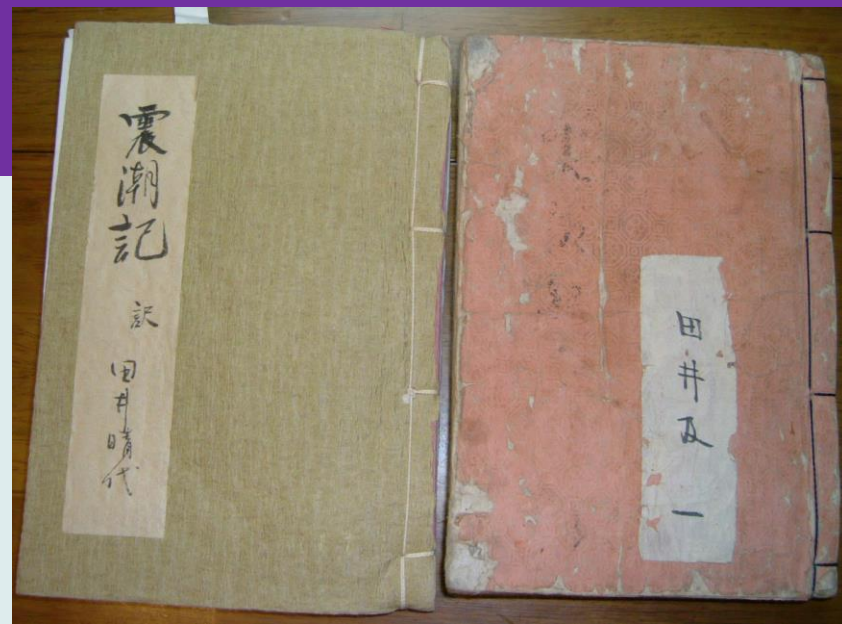 震潮記
訳
田井晴代
田井 一